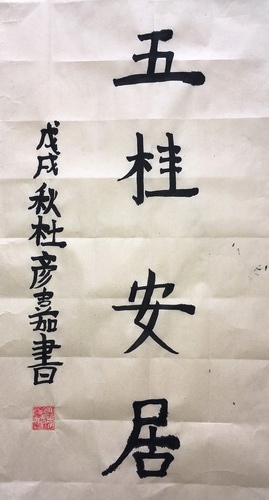 五桂安居
戊戌秋杜彦茹書